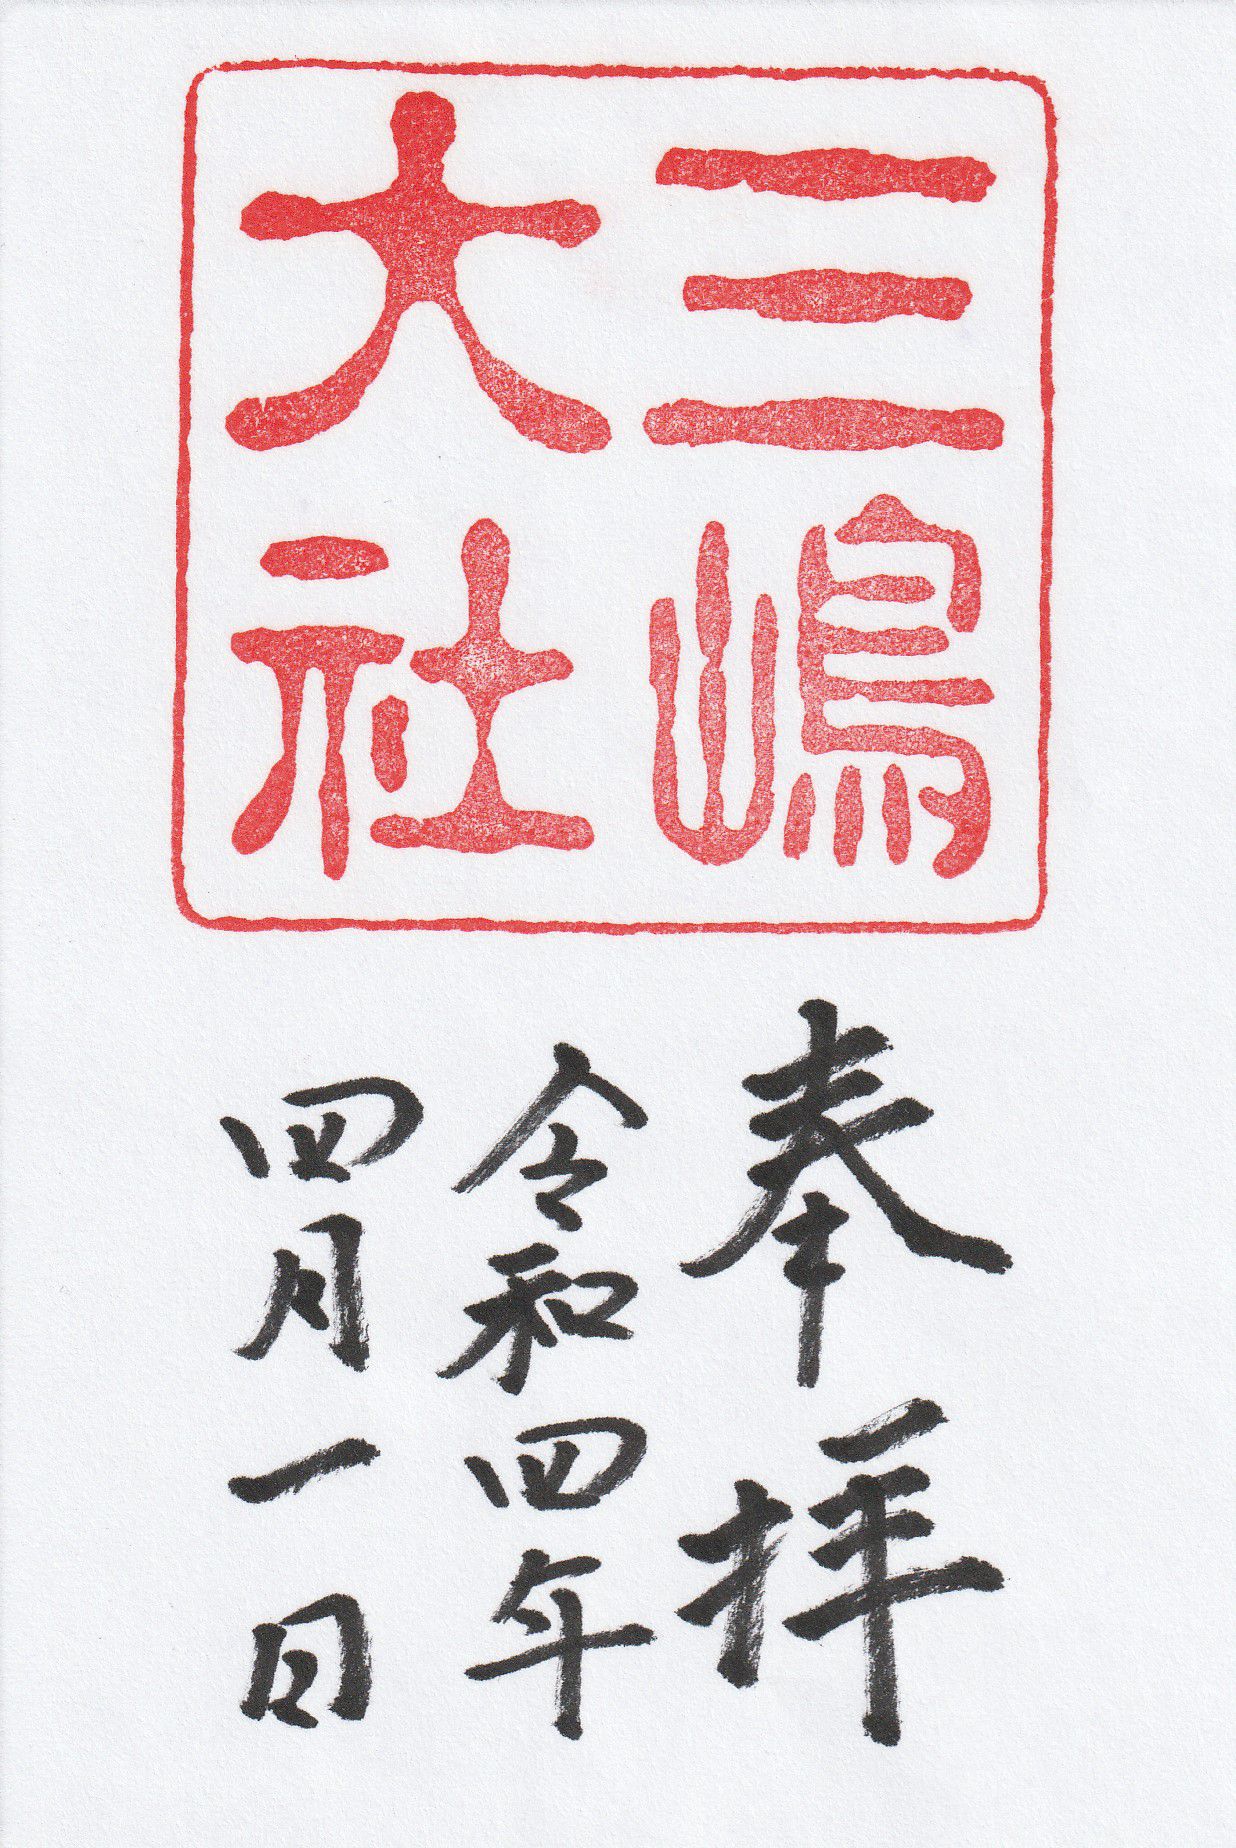 三嶋
大社
奉拝
令和四年
四月一日